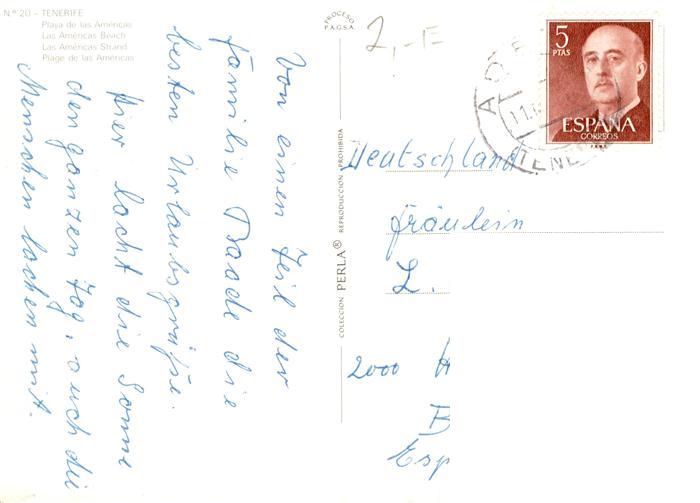 Nº 20 – TENERIFE
Playa de las Américas
Las Américas Beach
Las Américas Strand
Plage de las Américas
Von einen Teil der
familie Baade die
besten Urlaubsgrüße.
Hier lacht die Sonne
den ganzen Tag, auch die
Menschen lachen mit.
PROCESO
P.A.G.S.A.
COLECCION PERLA® REPRODUCCION PROHIBIDA
2,-E
5
PTAS
ESPAÑA
CORREOS
TENE
Deutschland
Fräulein
L.
2000 H
B
Esp